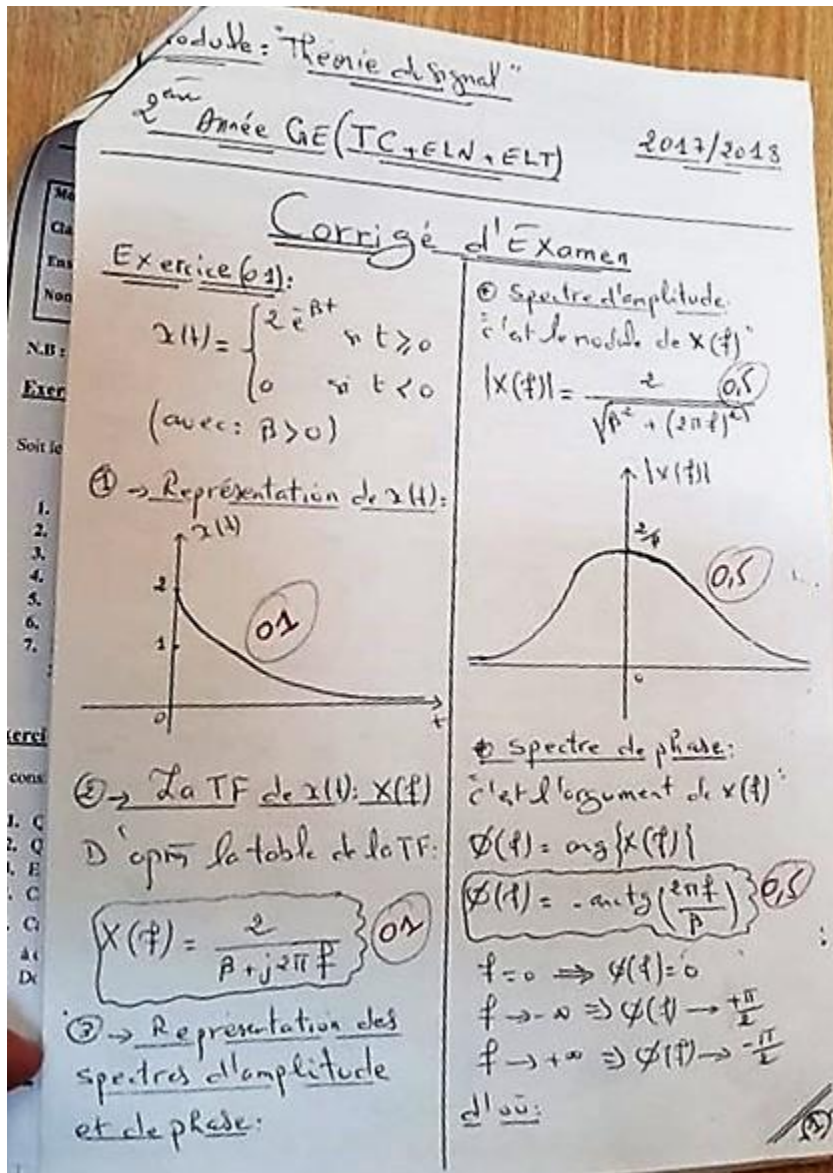 Module: "Théorie du signal"
2ème Année GE (TC+ELN+ELT)
2017/2018
Corrigé d'Examen
Exercice (01):
x(t) = { 2 e^-βt si t ≥ 0
0 si t < 0
(avec: β > 0)
① → Représentation de x(t):
x(t)
2
1
0
t
01
② → La TF de x(t): X(f)
D'après la table de la TF:
X(f) = 2 / (β + j2πf)
01
③ → Représentation des
spectres d'amplitude
et de phase:
Spectre d'amplitude.
"c'est le module de X(f)"
|X(f)| = 2 / √(β² + (2πf)²)
0,5
|X(f)|
2/β
0,5
0
Spectre de phase:
c'est l'argument de X(f)
Ø(f) = arg{X(f)}
Ø(f) = - arctg(2πf / β)
0,5
f = 0 ⟹ φ(f) = 0
f → -∞ ⟹ φ(f) → +π/2
f → +∞ ⟹ φ(f) → -π/2
d'où:
(1)
N.B:
Exer
Soit le
1.
2.
3.
4.
5.
6.
7.